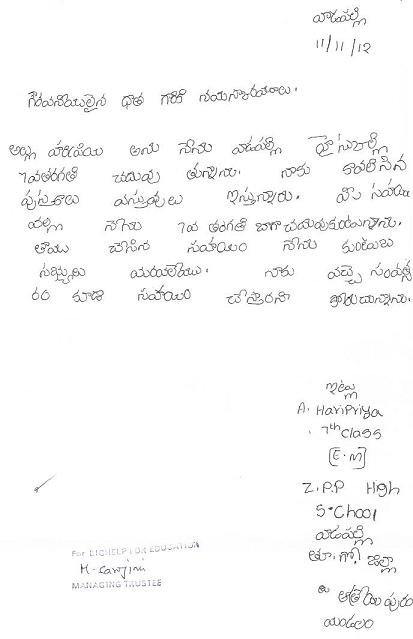 వాడపల్లి
11/11/12
గౌరవనీయులైన దాత గారికి నమస్కారములు.
అల్లు హరిప్రియ అను నేను వాడపల్లి హైస్కూల్లో
7వతరగతి చదువు తున్నాను. నాకు కావలిసిన
పుస్తకాలు వస్తువులు ఇస్తున్నారు. మీ సహాయం
వల్ల నేను 7వ తరగతి బాగా చదువుకుంటున్నాను.
తాము చేసిన సహాయం నేను కుటుంబ
సభ్యులు మరువలేము. నాకు వచ్చె సంవత్స
రం కూడా సహాయం చేస్తారని కోరుచున్నాను.
ఇట్లు
A. HariPriya
7th Class
[E.M]
Z.P.P High
S.Chool
వాడపల్లి
తూ.గో. జిల్లా
ఆత్రేయపురం
మండలం
For LIGHELP FOR EDUCATION
M. Sarojini
MANAGING TRUSTEE